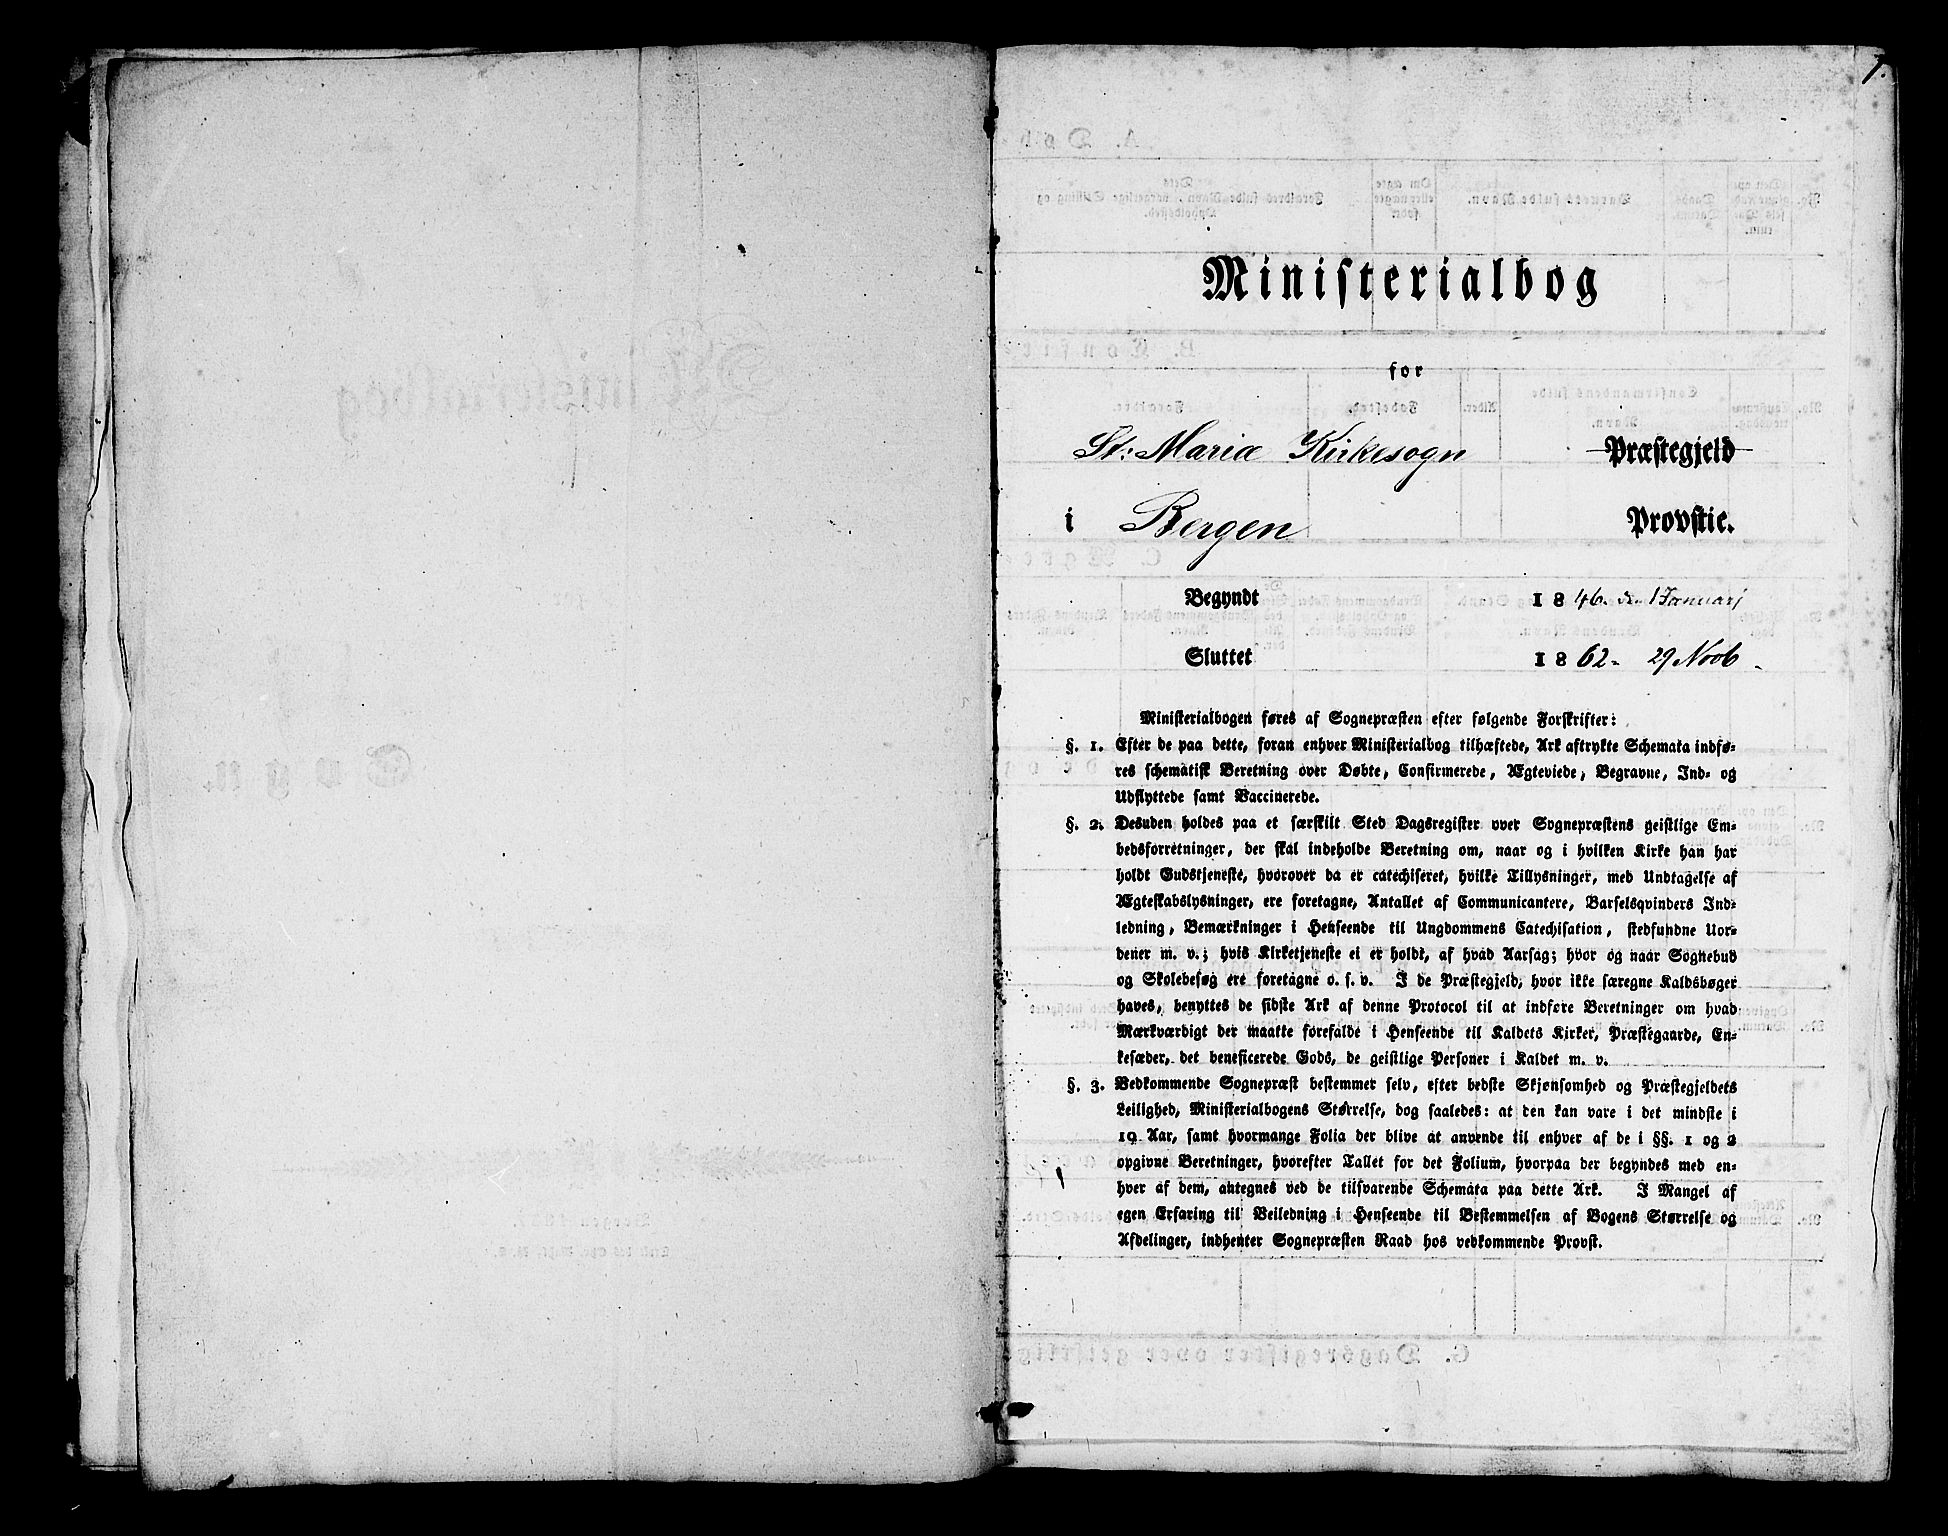 1.
Ministerialbog
for
St: Mariæ Kirkesogn Præstegjeld
i Bergen Provstie.
Begyndt 1846. den 1 Januarj
Sluttet 1862. 29 Novb.
Ministerialbogen føres af Sognepræsten efter følgende Forskrifter:
§. 1. Efter de paa dette, foran enhver Ministerialbog tilhæftede, Ark aftrykte Schemata indfø-
res schematisk Beretning over Døbte, Confirmerede, Ægteviede, Begravne, Ind- og
Udflyttede samt Vaccinerede.
§. 2. Desuden holdes paa et særskilt Sted Dagsregister over Sognepræstens geistlige Em-
bedsforretninger, der skal indeholde Beretning om, naar og i hvilken Kirke han har
holdt Gudstjeneste, hvorover da er catechiseret, hvilke Tillysninger, med Undtagelse af
Ægteskabslysninger, ere foretagne, Antallet af Communicantere, Barselqvinders Ind-
ledning, Bemærkninger i Henseende til Ungdommens Catechisation, stedfundne Uor-
dener m. v.; hvis Kirketjeneste ei er holdt, af hvad Aarsag; hvor og naar Sognebud
og Skolebesøg ere foretagne o. s. v. I de Præstegjeld, hvor ikke særegne Kaldsbøger
haves, benyttes de sidste Ark af denne Protocol til at indføre Beretninger om hvad
Mærkværdigt der maatte forefalde i Henseende til Kaldets Kirker, Præstegaarde, En-
kesæder, det beneficerede Gods, de geistlige Personer i Kaldet m. v.
§. 3. Vedkommende Sognepræst bestemmer selv, efter bedste Skjønsomhed og Præstegjeldets
Leilighed, Ministerialbogens Størrelse, dog saaledes: at den kan vare i det mindste i
10 Aar, samt hvormange Folia der blive at anvende til enhver af de i §§. 1 og 2
opgivne Beretninger, hvorefter Tallet for det Folium, hvorpaa der begyndes med en-
hver af dem, antegnes ved de tilsvarende Schemata paa dette Ark. I Mangel af
egen Erfaring til Veiledning i Henseende til Bestemmelsen af Bogens Størrelse og
Afdelinger, indhenter Sognepræsten Raad hos vedkommende Provst.